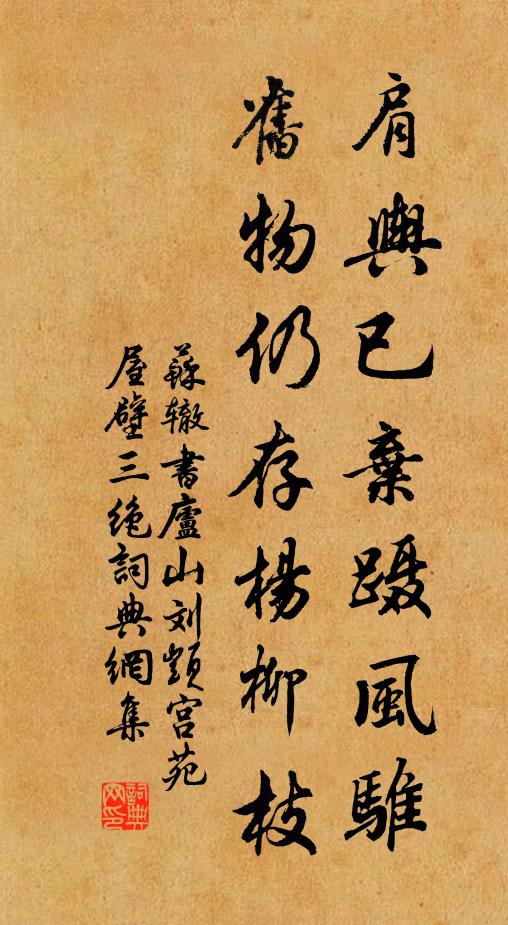 肩輿已棄蹑風騅
舊物仍存楊柳枝
蘇辙書廬山刘顗宫苑
屋壁三绝詞典網集
詞典网印